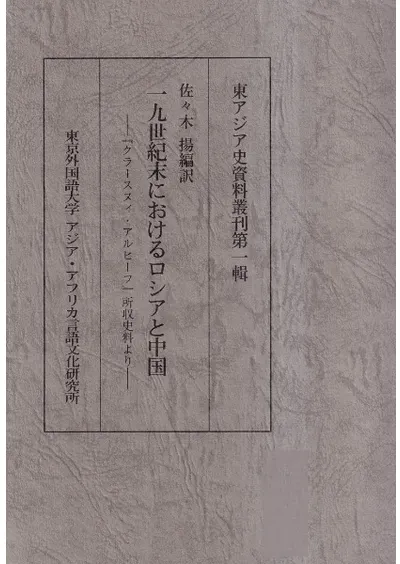 東アジア史資料叢刊第一輯
佐々木 揚編訳
一九世紀末におけるロシアと中国
——『クラースヌィ・アルヒーフ』所収史料より——
東京外国語大学 アジア・アフリカ言語文化研究所